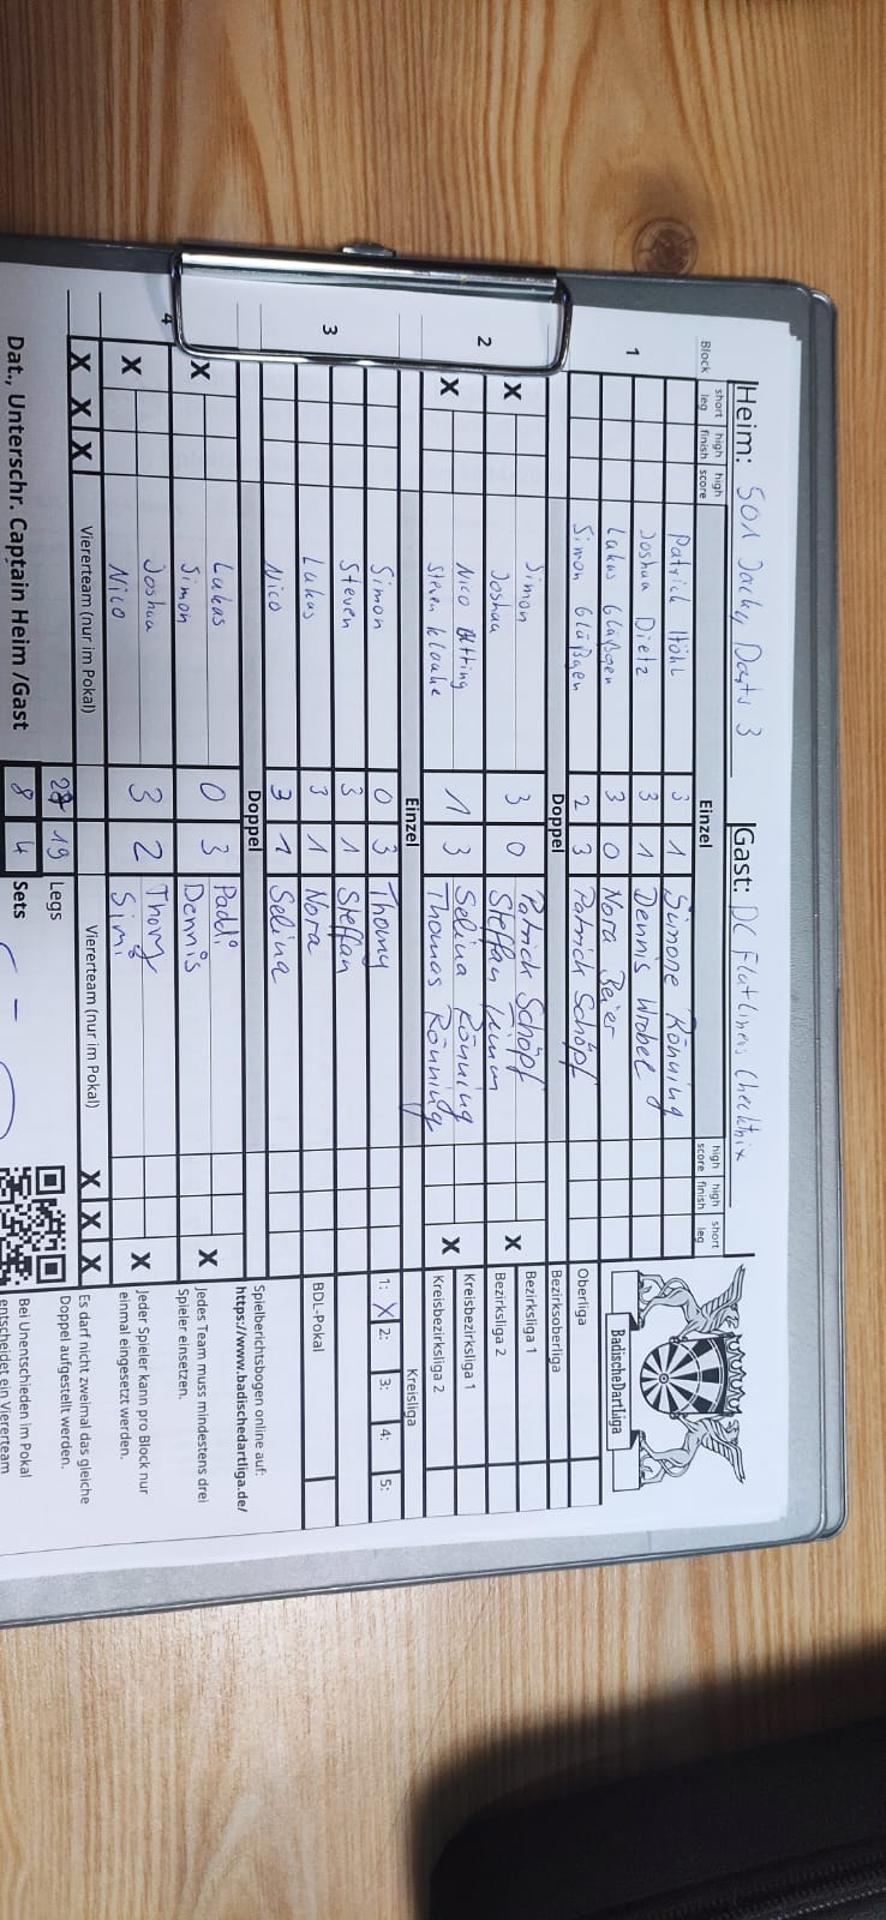 Heim: 501 Jacky Darts 3 Gast: DC Flatliners Checktrix
Block short leg high finish high score Einzel high score high finish short leg
1 Patrick Höhl 3 1 Simone Rönning
Joshua Dietz 3 1 Dennis Wrobel
Lukas Gläßgen 3 0 Nora Beier
Simon Gläßgen 2 3 Patrick Schöpf
Doppel
2 X Simon 3 0 Patrick Schöpf X
Joshua Steffan
X Nico 1 3 Selina Rönning X
Steven Thomas Rönning
Einzel
3 Simon 0 3 Thomy
Steven 3 1 Steffan
Lukas 3 1 Nora
Nico 3 1 Selina
Doppel
4 X Lukas 0 3 Paddi X
Simon Dennis
X Joshua 3 2 Thomy X
Nico Simi
X X X Vierteam (nur im Pokal) Vierteam (nur im Pokal) X X X
19 Legs
Dat., Unterschr. Captain Heim /Gast 8 4 Sets
BadischeDartLiga
Oberliga
Bezirksoberliga
Bezirksliga 1
Bezirksliga 2
Kreisbezirksliga 1
Kreisbezirksliga 2
Kreisliga
1: X 2: 3: 4: 5:
BDL-Pokal
Spielberichtsbogen online auf:
https://www.badischedartliga.de/
Jedes Team muss mindestens drei
Spieler einsetzen.
Jeder Spieler kann pro Block nur
einmal eingesetzt werden.
Es darf nicht zweimal das gleiche
Doppel aufgestellt werden.
Bei Unentschieden im Pokal
entscheidet ein Viererteam